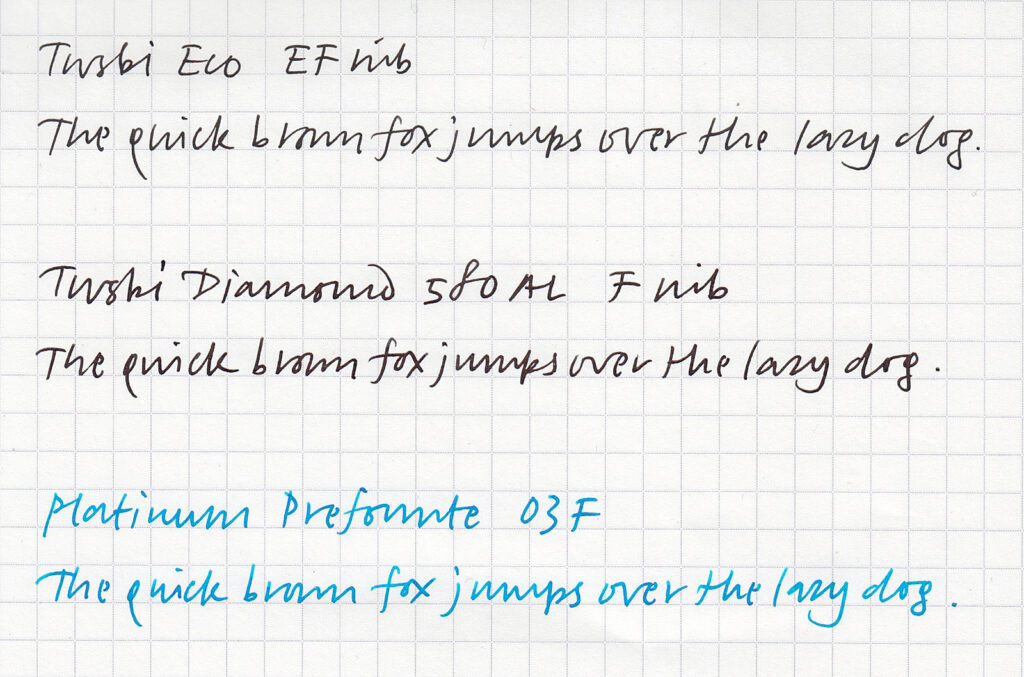 Twsbi Eco EF nib
The quick brown fox jumps over the lazy dog.
Twsbi Diamond 580 AL F nib
The quick brown fox jumps over the lazy dog.
Platinum Prefounte 03F
The quick brown fox jumps over the lazy dog.